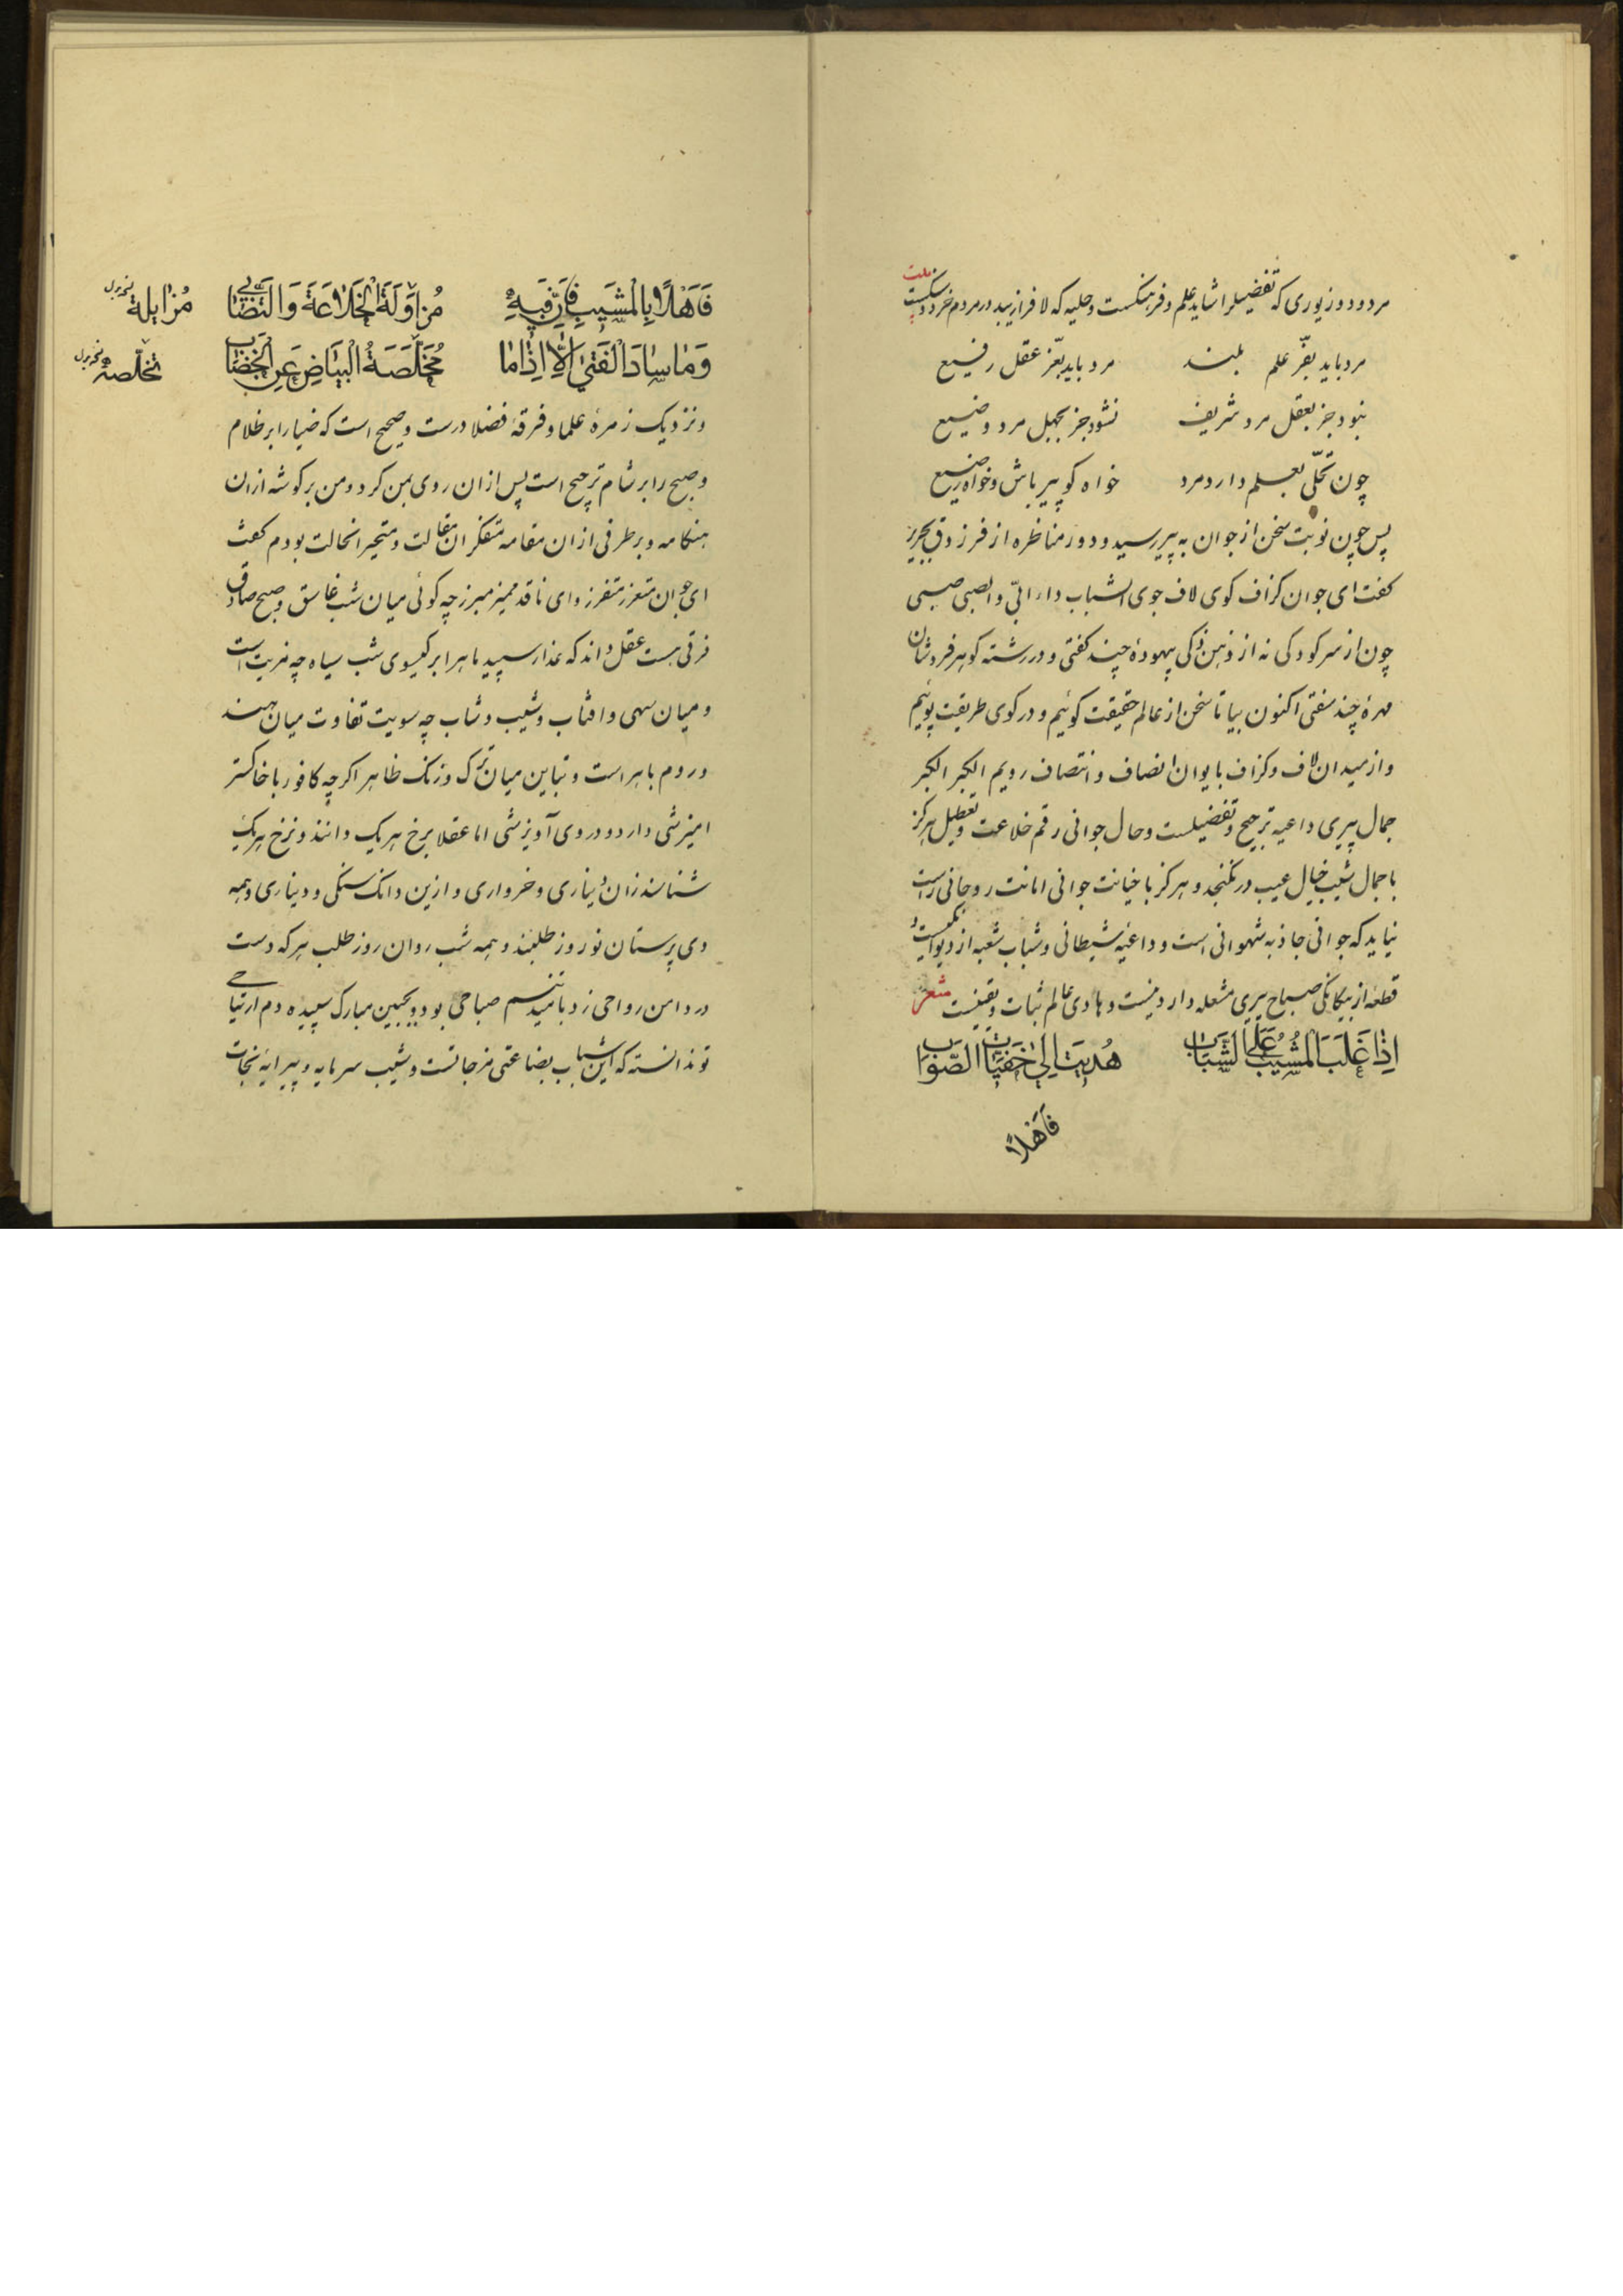 مرد ودود زیوری که تفضیلرا شاید علم و فرهنکست و حلیه که لافرا زیبد در مردم خرد و سکیست
ملت
مرد باید بفرّ علم بلند مرد باید بعّز عقل رفیع
نبود جز بعقل مرد شریف نشود جز بجهل مرد وضیع
چون تحلّی بعلم دارد مرد خواه کو پیر باش و خواه رضیع
پس چون نوبت سخن از جوان به پیر رسید و دور مناظره از فرزدق بجریر
کفت ای جوان کزاف کوی لاف جوی الشباب داء ابیّ والصبی صبی
چون از سر کودکی نه از ذهن ذکی بیهودهٔ چند کفتی و در رشته کوهر فروشان
مهرهٔ چند سفتی اکنون بیا تا سخن از عالم حقیقت کوئیم و در کوی طریقت پوئیم
و از میدان لاف و کزاف بایوان انصاف و انتصاف رویم الکبر الکبر
جمال پیری داعیه ترجیح و تفضیلست و حال جوانی رقم خلاعت و تعطیل هرکز
با جمال شیب خیال عیب در نکنجد و هرکز با خیانت جوانی امانت روحانی راست
نیاید که جوانی جاذبه شهوانی است و داعیه شیطانی و شباب شعبه از دیوانکیست و
قطعه از بیکانکی صباح پیری مشعله دار دینست و هادی عالم ثبات و یقینست شعر
اِذٰا غَلَبَ الْمَشٖیبُ عَلَی الشَّبَابِ هُدیٖتَ اِلیٰ خَفِیَّاتِ الصَّوٰابِ
فَاَهْلاً
فَاَهْلاً بِالْمَشٖیبِ فَاِنَّ فٖیهِ مُزٰاوَلَةَ الْخَلَاعَةِ وَالتَّصَٰابیٖ
مُزایلة نخ بدل
وَمٰا سٰادَ الْفَتیٰ اِلّٰا اِذٰا مٰا مُخَلَّصَةُ الْبَیٰاضِ عَنِ الْخِضٰابِ
تخلّصة نخ بدل
و نزدیک زمرهٔ علما و فرقهٔ فضلا درست و صحیح است که ضیا را بر ظلام
و صبح را بر شام ترجیح است پس از ان روی بمن کرد و من بر کوشه از ان
هنکامه و بر طرفی از ان مقامه متفکر ان مقالت و متحیر انحالت بودم کفت
ای جوان متعزز متفرز و ای ناقد ممیز مبرز چه کوئی میان شب غاسق و صبح صادق
فرقی هست عقل داند که عذار سپید ماهرا بر کیسوی شب سیاه چه مزیت است
و میان سهی و افتاب و شیب و شاب چه سویت تفاوت میان هند
و روم باهر است و تباین میان ترک و زنک ظاهر اکرچه کافور با خاکستر
امیزشی دارد و در وی آویزشی اما عقلا برخ هریک دانند و نرخ هریک
شناسند زان دیناری و خرواری و ازین دانک سنکی و دیناری و همه
دی پرستان نوروز طلبند و همه شب روان روز طلب هرکه دست
در دامن رواحی زد بامید تنسم صباحی بود و بجبین مبارک سپیده دم ارتیاحی
تو ندانسته که این شباب بضاعتی مزجاتست و شیب سرمایه و پیرایه نجات